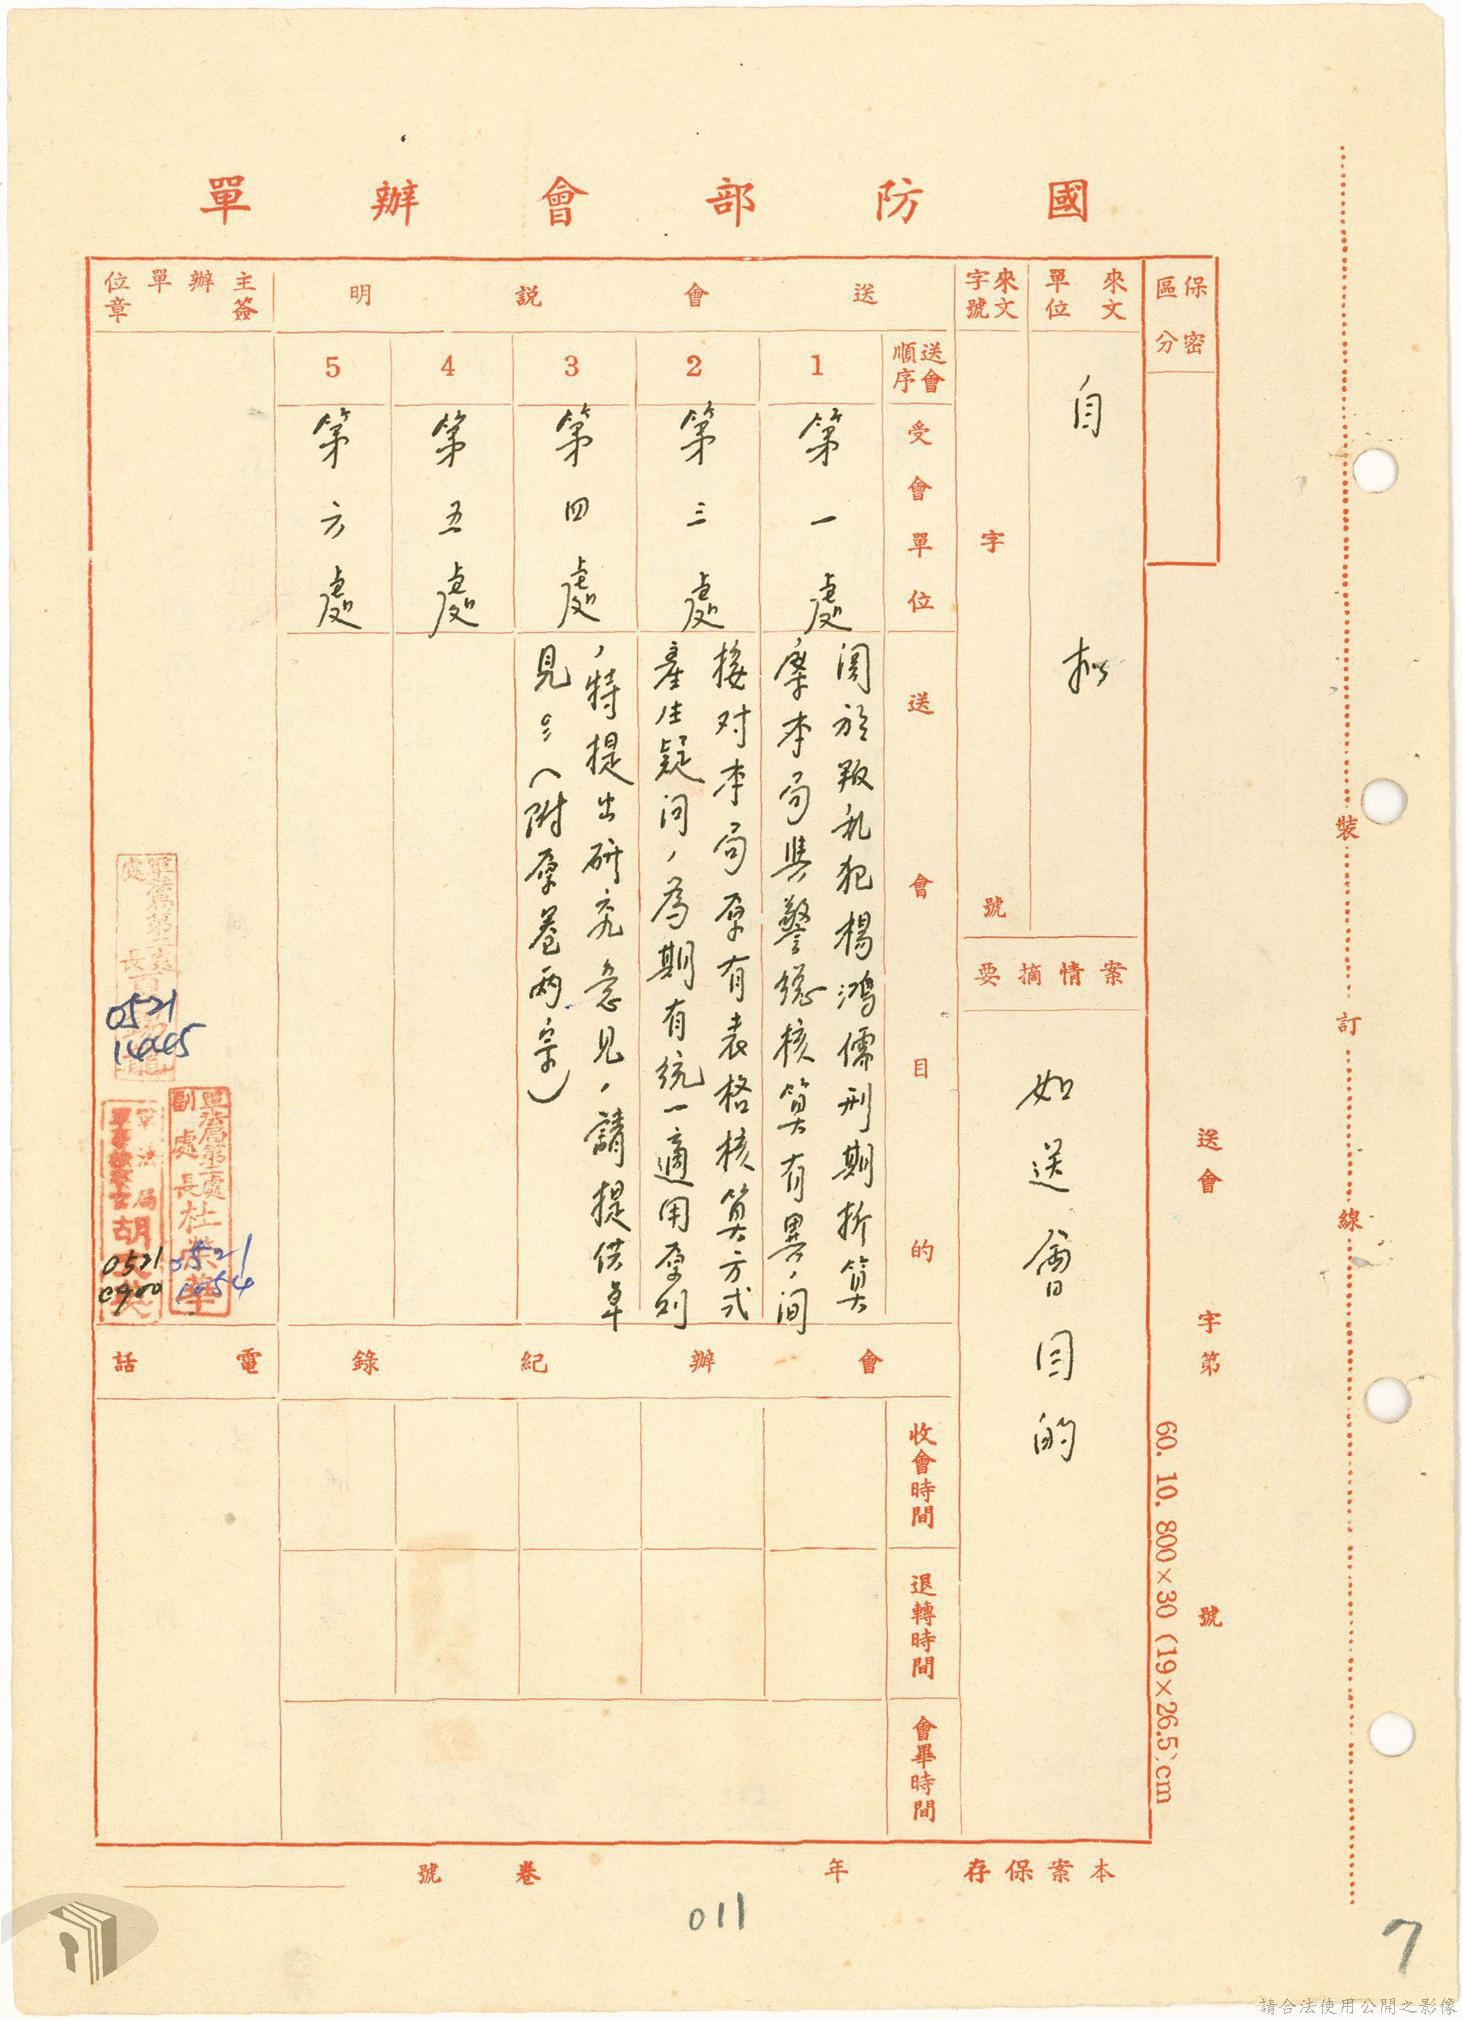 國防部會辦單
保密區分
來文單位
自拟
來文字號
字
號
案情摘要
如送會目的
送會說明
送會順序
1
2
3
4
5
受會單位
第一處
第三處
第四處
第五處
第六處
送會目的
関於叛乱犯楊鴻儒刑期折算
案本局與警總核算有異,間
接对本局原有表格核算方式
產生疑问,為期有統一適用原則
,特提出研究意見,請提供卓
見(附原卷兩宗)
主辦單位簽章
軍法局第二處
處長
0521
1445
軍法局第二處
副處長杜榮華
0521
1054
軍法局
胡
0521
0900
會辦紀錄
電話
收會時間
退轉時間
會畢時間
送會 字第 號
60. 10. 800×30 (19×26.5)cm
裝訂線
本案保存 年 卷 號
011
7
請合法使用公開之影像